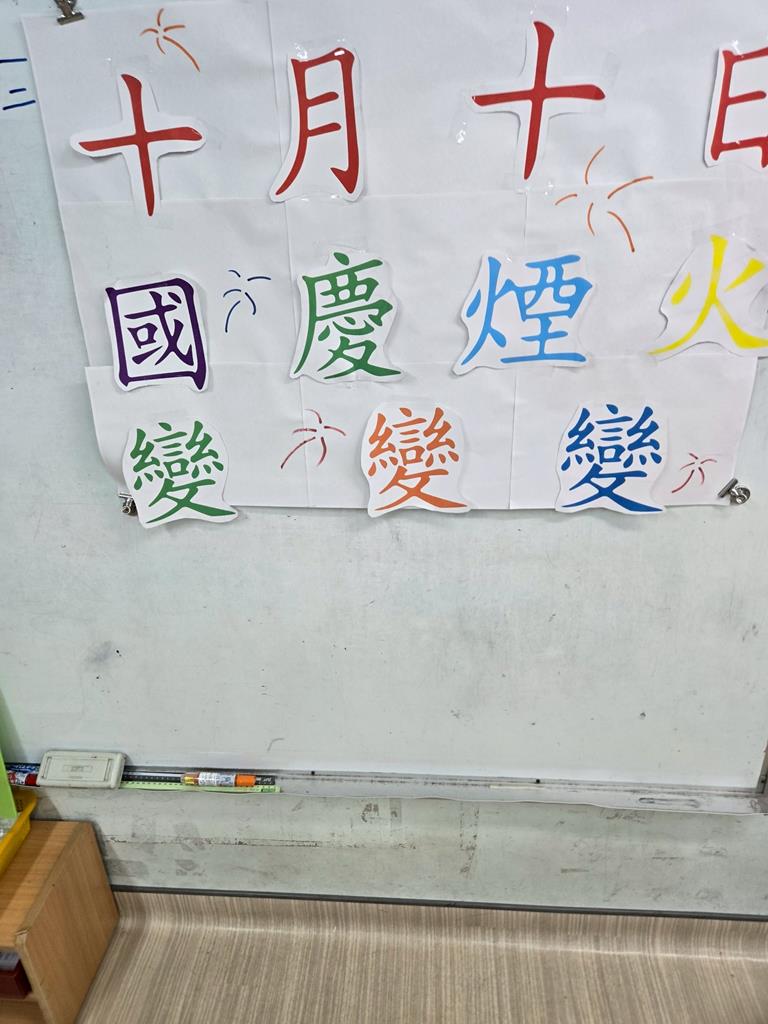 十月十日
國慶煙火
變變變